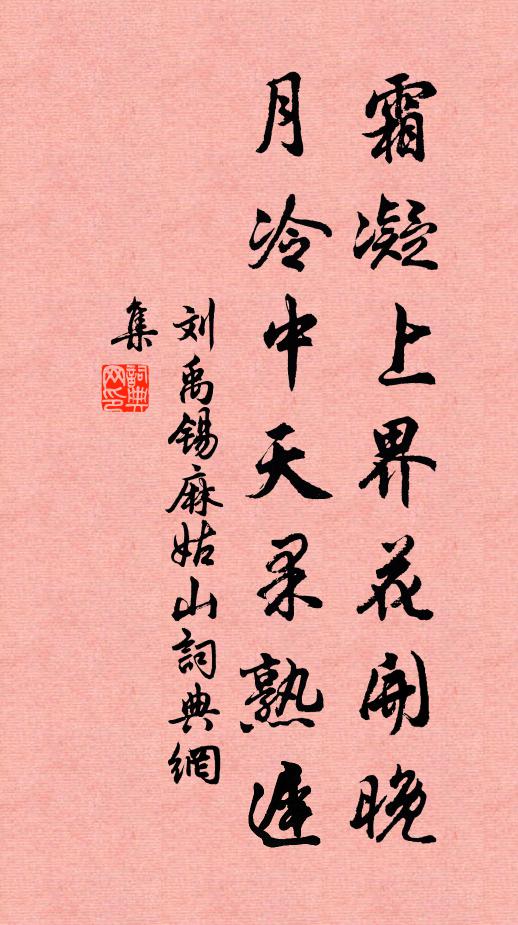 霜凝上界花開晚
月冷中天果熟遲
刘禹锡麻姑山詞典網
集
詞典
网印